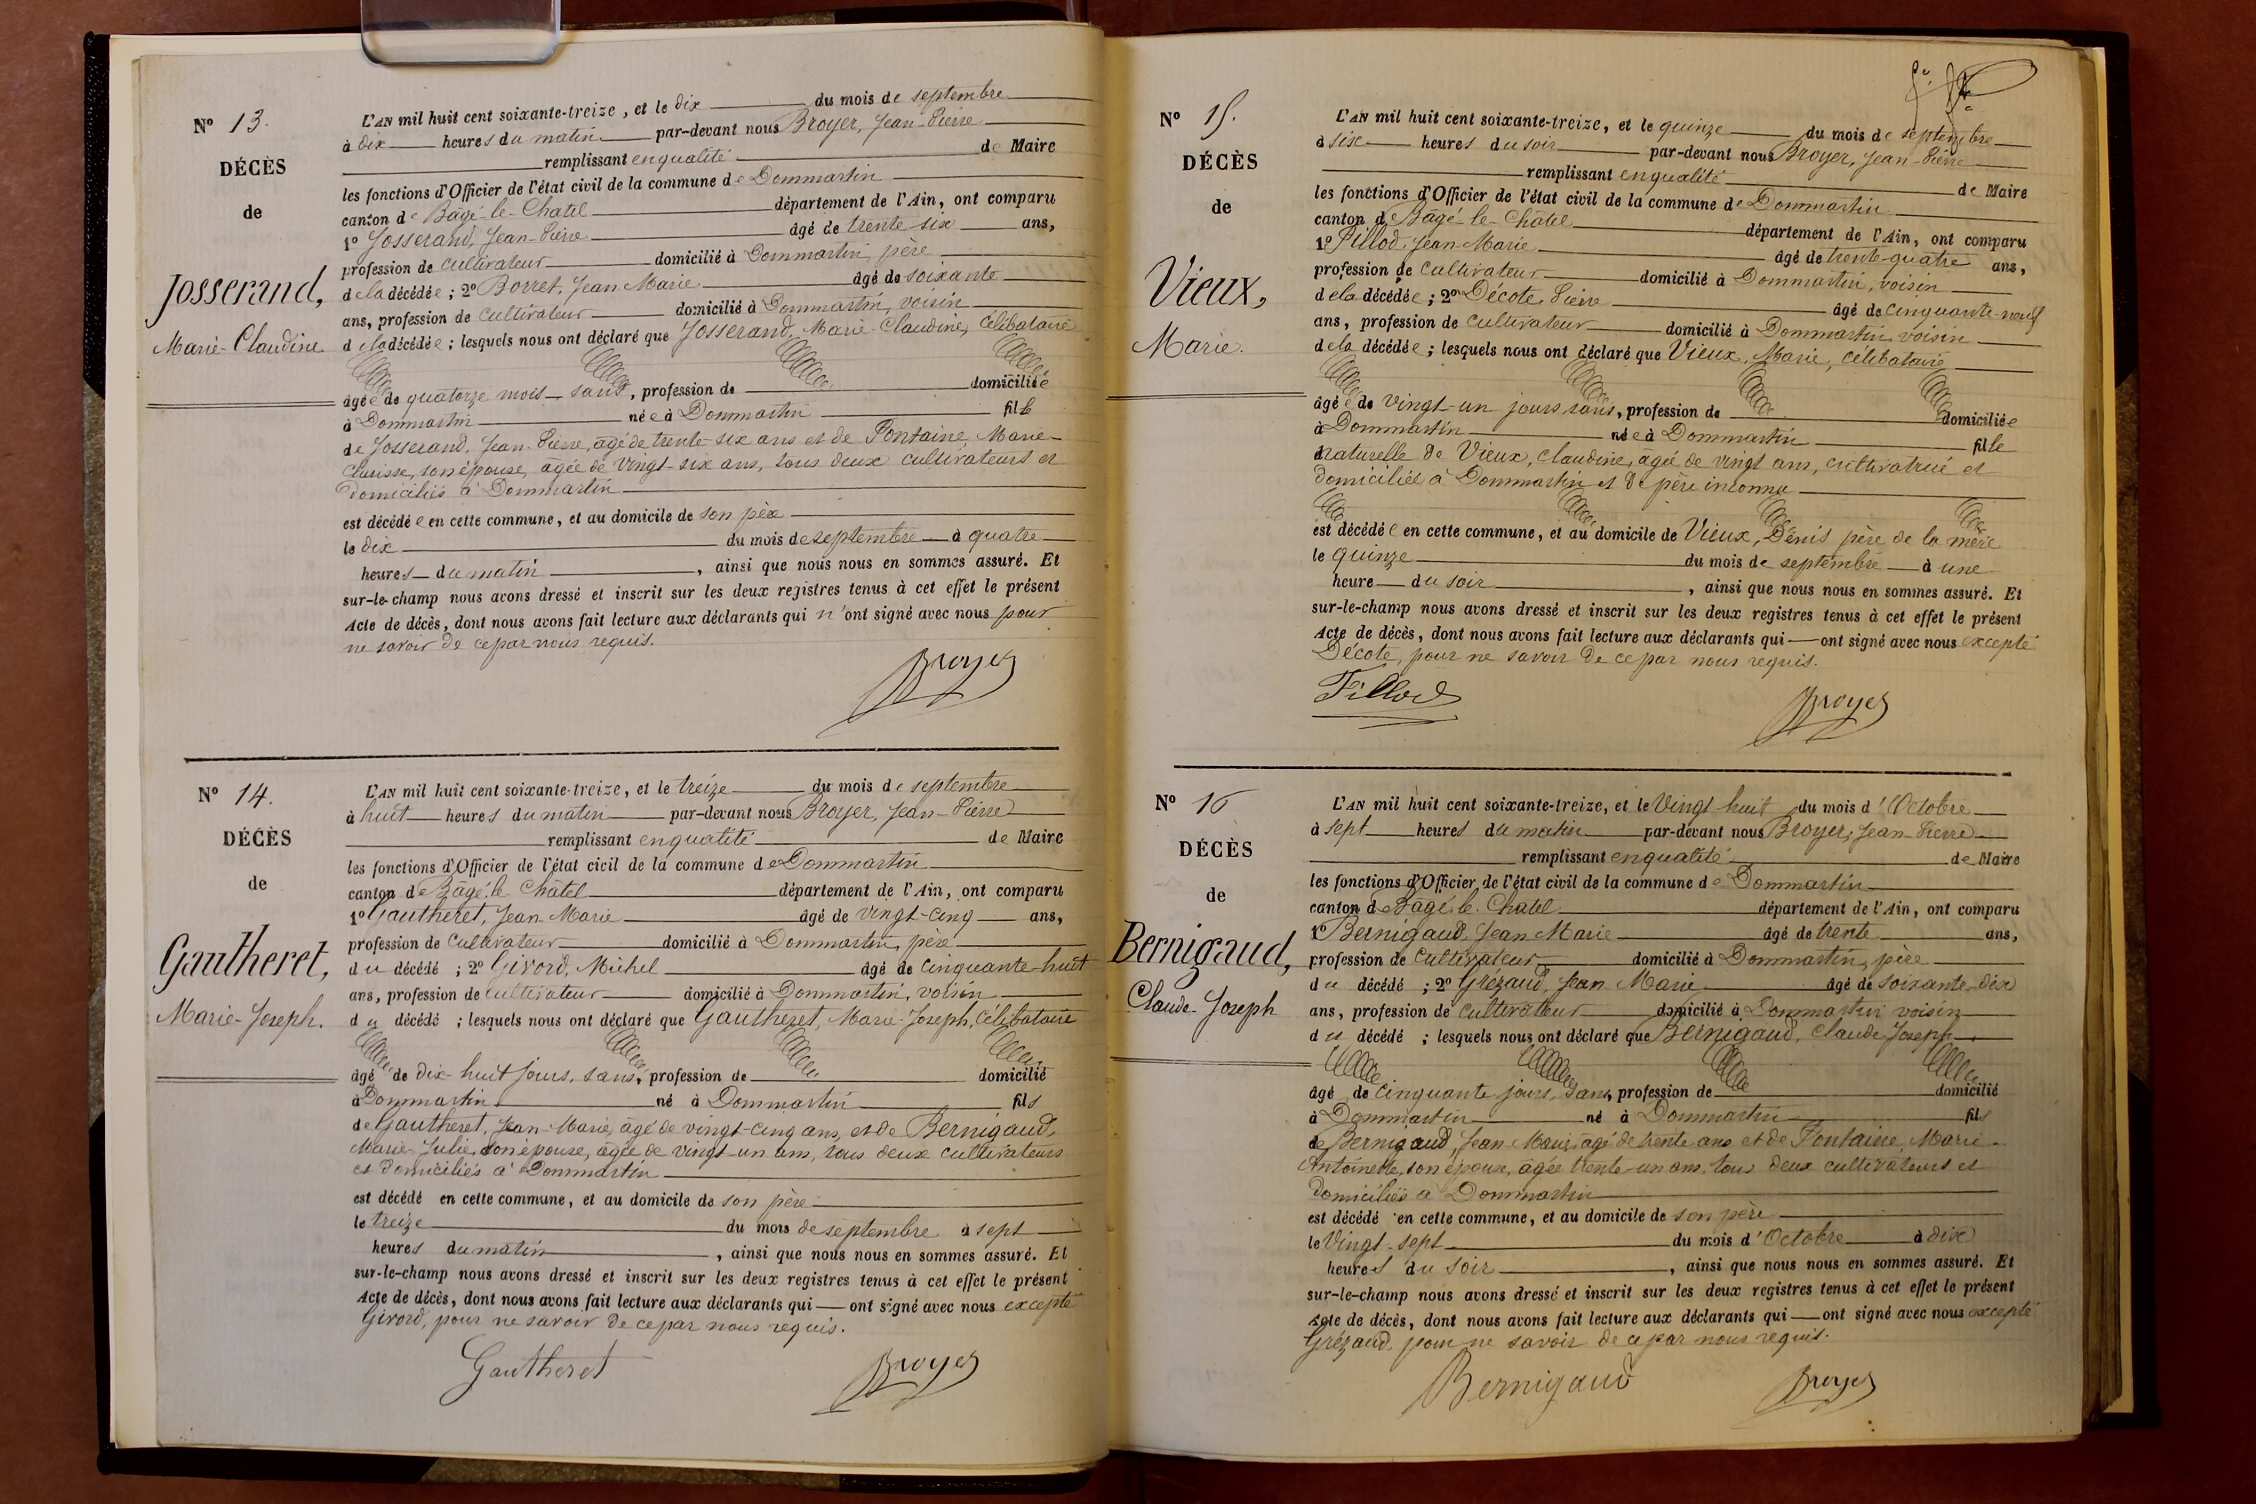 Nº 13.
DÉCÈS
de
Josserand,
Marie-Claudine
L'AN mil huit cent soixante-treize, et le dix du mois de septembre
à dix heures du matin par-devant nous Broyer, Jean-Pierre
remplissant en qualité de Maire
les fonctions d'Officier de l'état civil de la commune de Dommartin
canton de Bâgé-le-Chatel département de l'Ain, ont comparu
1º Josserand, Jean-Pierre âgé de trente-six ans,
profession de cultivateur domicilié à Dommartin, père
de la décédée ; 2º Borret, Jean Marie âgé de soixante
ans, profession de cultivateur domicilié à Dommartin, voisin
de la décédée ; lesquels nous ont déclaré que Josserand, Marie-Claudine, célibataire
âgée de quatorze mois sans, profession de domiciliée
à Dommartin née à Dommartin fille
de Josserand, Jean-Pierre, âgé de trente-six ans et de Fontaine, Marie-
Clarisse, son épouse, âgée de vingt-six ans, tous deux cultivateurs et
domiciliés à Dommartin
est décédée en cette commune, et au domicile de son père
le dix du mois de septembre à quatre
heures du matin, ainsi que nous nous en sommes assuré. Et
sur-le-champ nous avons dressé et inscrit sur les deux registres tenus à cet effet le présent
Acte de décès, dont nous avons fait lecture aux déclarants qui n'ont signé avec nous pour
ne savoir de ce par nous requis.
Broyer
Nº 14.
DÉCÈS
de
Gautheret,
Marie-Joseph.
L'AN mil huit cent soixante-treize, et le treize du mois de septembre
à huit heures du matin par-devant nous Broyer, Jean-Pierre
remplissant en qualité de Maire
les fonctions d'Officier de l'état civil de la commune de Dommartin
canton de Bâgé-le-Châtel département de l'Ain, ont comparu
1º Gautheret, Jean Marie âgé de vingt-cinq ans,
profession de cultivateur domicilié à Dommartin, père
du décédé ; 2º Givord, Michel âgé de cinquante-huit
ans, profession de cultivateur domicilié à Dommartin, voisin
du décédé ; lesquels nous ont déclaré que Gautheret, Marie-Joseph, célibataire
âgé de dix-huit jours, sans, profession de domicilié
à Dommartin né à Dommartin fils
de Gautheret, Jean-Marie, âgé de vingt-cinq ans, et de Bernigaud,
Marie-Julie, son épouse, âgée de vingt-un ans, tous deux cultivateurs
et domiciliés à Dommartin
est décédé en cette commune, et au domicile de son père
le treize du mois de septembre à sept
heures du matin, ainsi que nous nous en sommes assuré. Et
sur-le-champ nous avons dressé et inscrit sur les deux registres tenus à cet effet le présent
Acte de décès, dont nous avons fait lecture aux déclarants qui ont signé avec nous excepté
Givord, pour ne savoir de ce par nous requis.
Gautheret Broyer
Nº 15.
DÉCÈS
de
Vieux,
Marie.
L'AN mil huit cent soixante-treize, et le quinze du mois de septembre
à six heures du soir par-devant nous Broyer, Jean-Pierre
remplissant en qualité de Maire
les fonctions d'Officier de l'état civil de la commune de Dommartin
canton de Bâgé-le-Châtel département de l'Ain, ont comparu
1º Pillod, Jean-Marie âgé de trente-quatre ans,
profession de cultivateur domicilié à Dommartin, voisin
de la décédée ; 2º Décote, Pierre âgé de cinquante-neuf
ans, profession de cultivateur domicilié à Dommartin voisin
de la décédée ; lesquels nous ont déclaré que Vieux, Marie, célibataire
âgée de vingt-un jours sans, profession de domiciliée
à Dommartin née à Dommartin fille
naturelle de Vieux, Claudine, âgée de vingt ans, cultivatrice et
domiciliée à Dommartin et de père inconnu
est décédée en cette commune, et au domicile de Vieux, Dénis père de la mère
le quinze du mois de septembre à une
heure du soir, ainsi que nous nous en sommes assuré. Et
sur-le-champ nous avons dressé et inscrit sur les deux registres tenus à cet effet le présent
Acte de décès, dont nous avons fait lecture aux déclarants qui ont signé avec nous excepté
Décote, pour ne savoir de ce par nous requis.
Pillod Broyer
Nº 16
DÉCÈS
de
Bernigaud,
Claude-Joseph
L'AN mil huit cent soixante-treize, et le vingt-huit du mois d'Octobre
à sept heures du matin par-devant nous Broyer, Jean-Pierre
remplissant en qualité de Maire
les fonctions d'Officier de l'état civil de la commune de Dommartin
canton de Bâgé-le-Chatel département de l'Ain, ont comparu
1º Bernigaud, Jean Marie âgé de trente ans,
profession de cultivateur domicilié à Dommartin, père
du décédé ; 2º Grézaud, Jean Marie âgé de soixante-dix
ans, profession de cultivateur domicilié à Dommartin voisin
du décédé ; lesquels nous ont déclaré que Bernigaud, Claude Joseph
âgé de cinquante jours, sans, profession de domicilié
à Dommartin né à Dommartin fils
de Bernigaud, Jean-Marie, âgé de trente ans et de Fontaine, Marie-
Antoinette, son épouse, âgée trente-un ans, tous deux cultivateurs et
domiciliés à Dommartin
est décédé en cette commune, et au domicile de son père
le vingt-sept du mois d'Octobre à dix
heures du soir, ainsi que nous nous en sommes assuré. Et
sur-le-champ nous avons dressé et inscrit sur les deux registres tenus à cet effet le présent
Acte de décès, dont nous avons fait lecture aux déclarants qui ont signé avec nous excepté
Grézaud, pour ne savoir de ce par nous requis.
Bernigaud Broyer